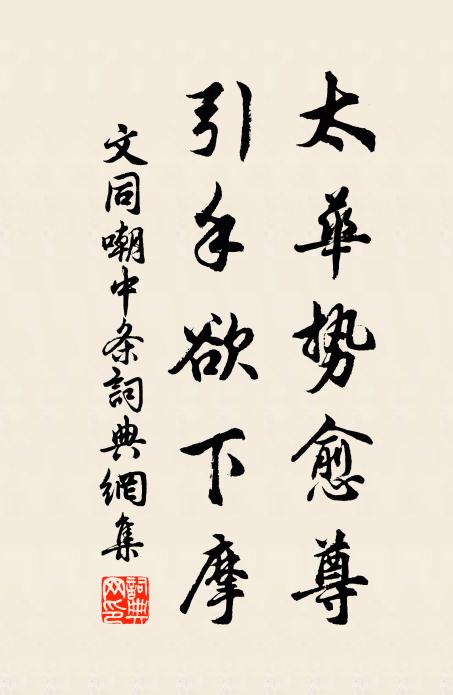 太華势愈尊
引手欲下摩
文同嘲中条詞典網集
詞典網印